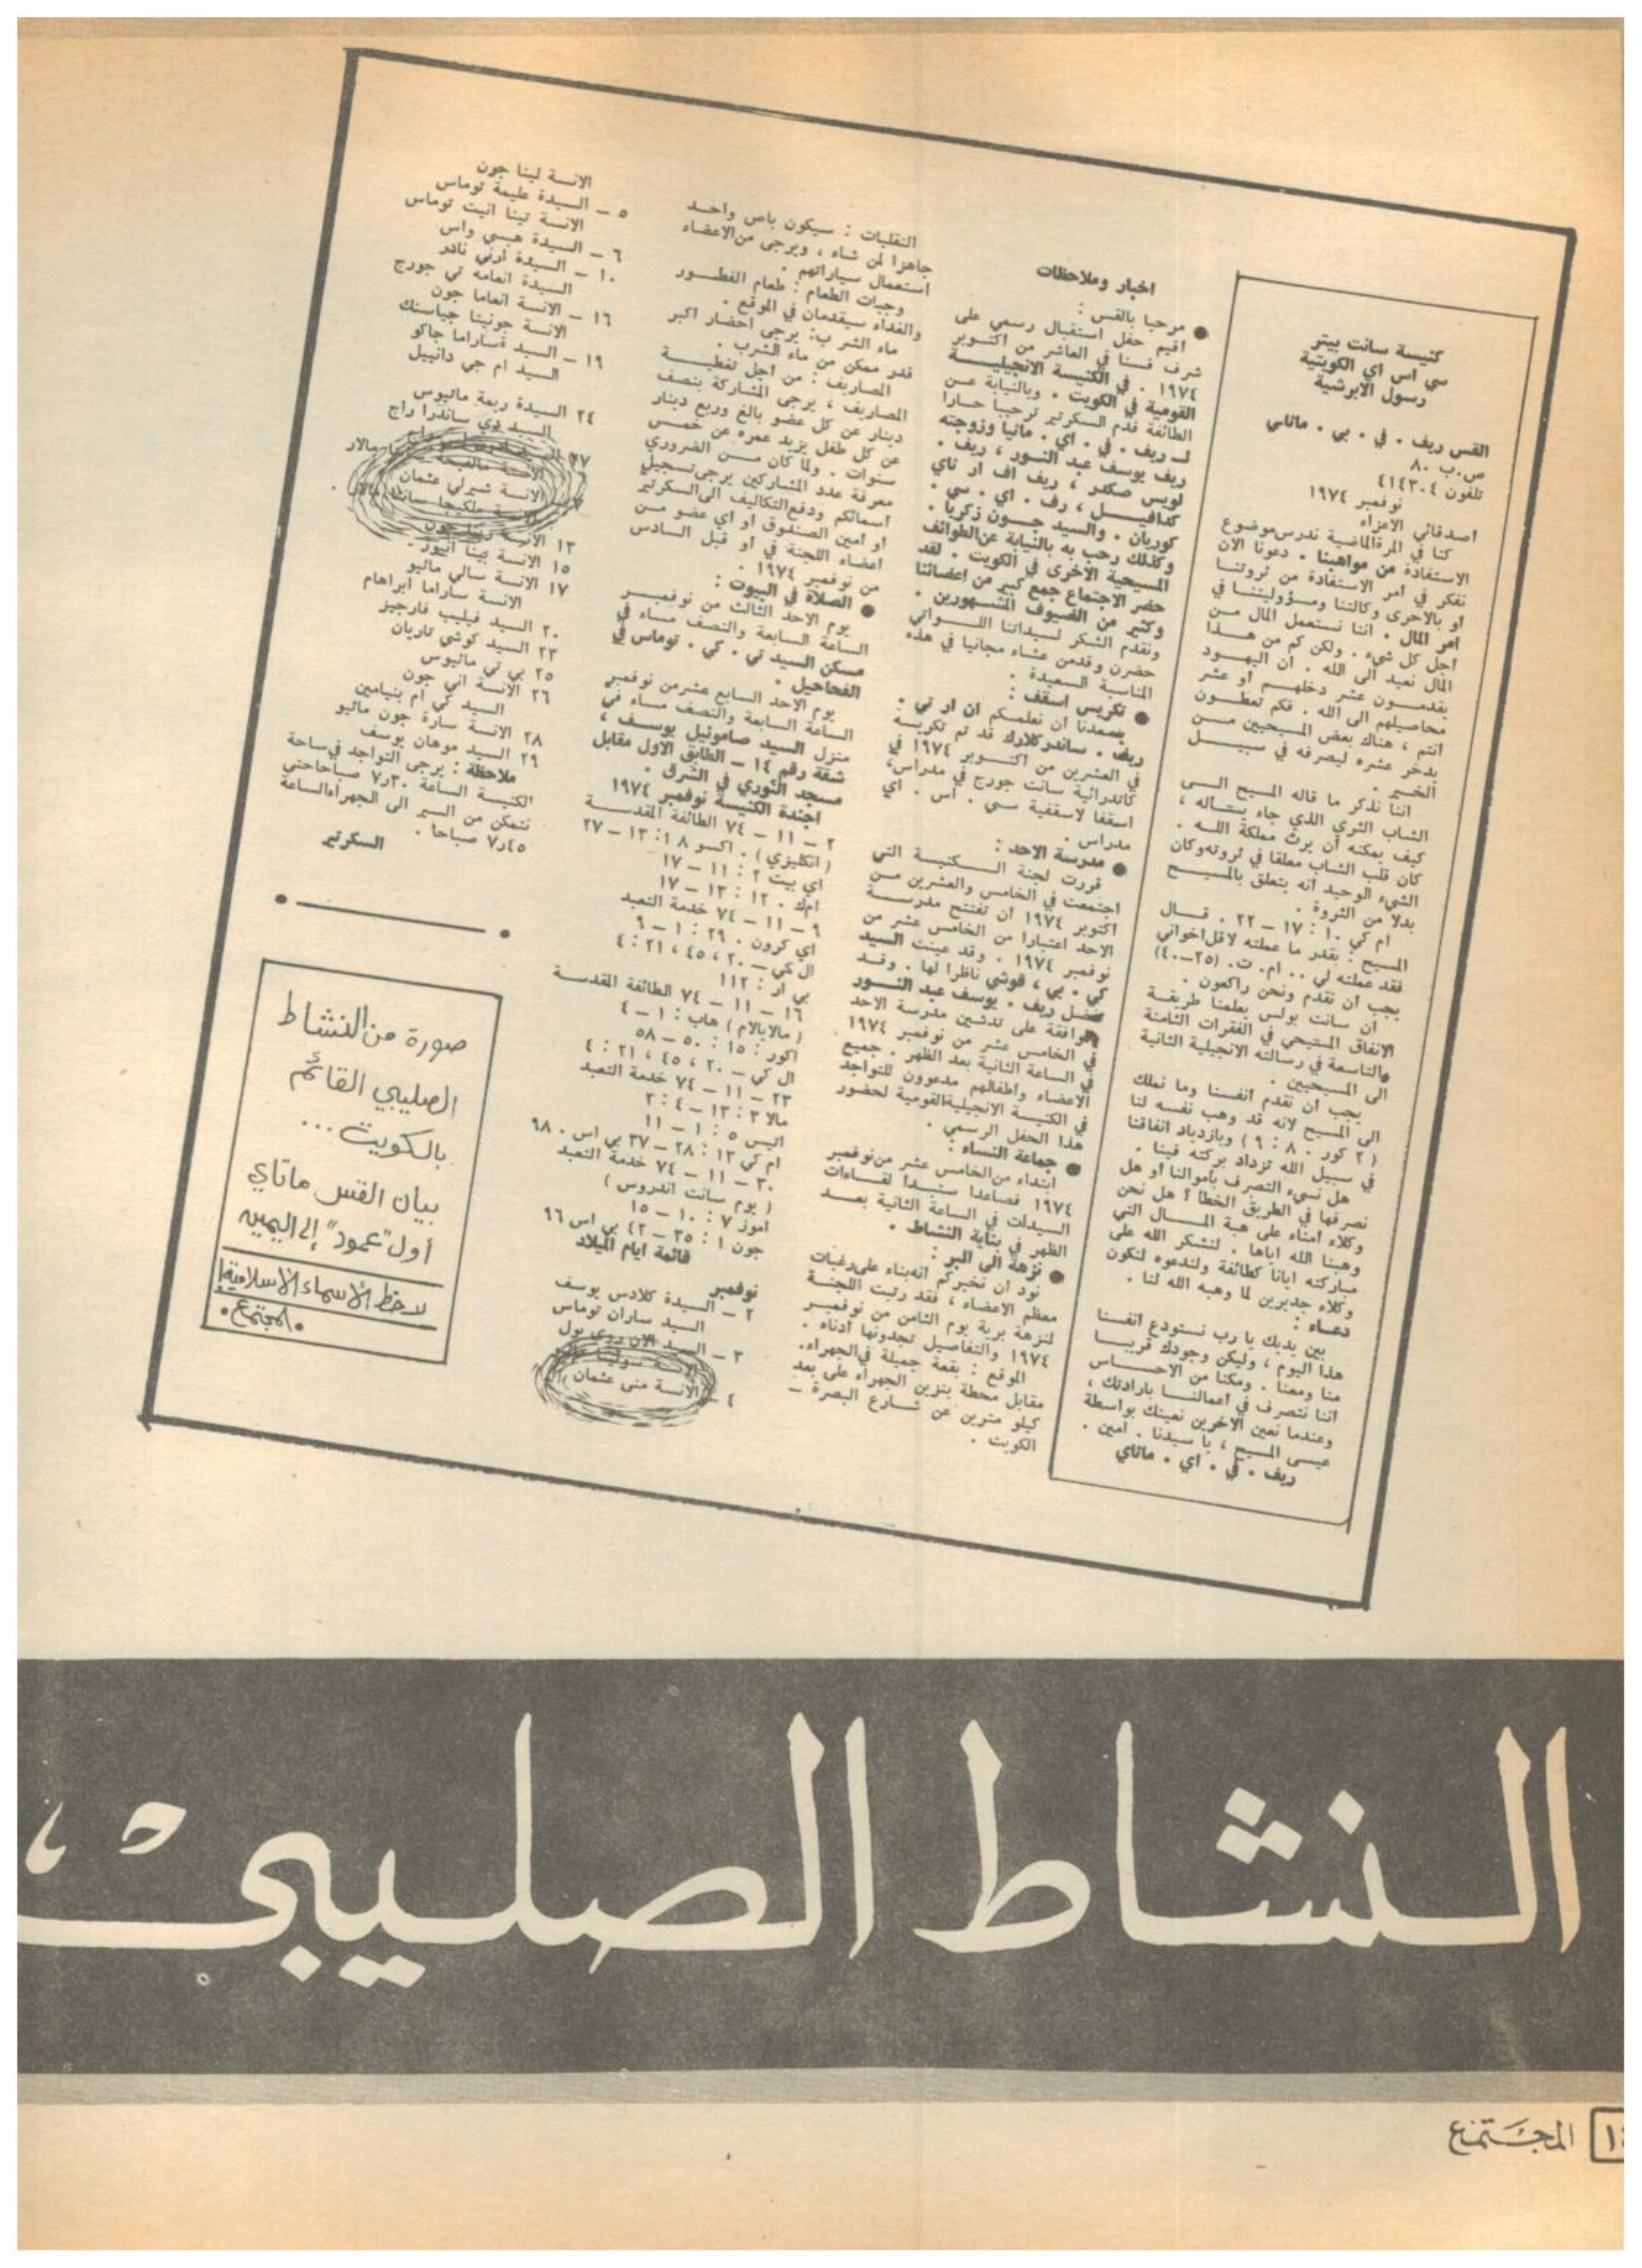 كنيسة سانت بيتر
سي اس اي الكويتية
رسول الابرشية
القس ريف . في . بي . ماتاي
ص.ب ٨٠
تلفون ٤١٤٣٠٤
نوفمبر ١٩٧٤
اصدقائي الاعزاء
كنا في المرة الماضية ندرس موضوع
الاستفادة من مواهبنا . دعونا الان
نفكر في امر الاستفادة من ثروتنا
او بالاحرى وكالتنا ومسؤوليتنا في
امر المال . اننا نستعمل المال من
اجل كل شيء . ولكن كم من هذا
المال نعيد الى الله . ان اليهود
يقدمون عشر دخلهم او عشر
محاصيلهم الى الله . فكم تعطون
انتم ، هناك بعض المسيحيين من
يدخر عشره ليصرفه في سبيل
الخير .
اننا نذكر ما قاله المسيح الى
الشاب الثري الذي جاء يسأله ،
كيف يمكنه أن يرث مملكة الله .
كان قلب الشاب معلقا في ثروته وكان
الشيء الوحيد انه يتعلق بالمسيح
بدلا من الثروة .
ام كي ١٠ : ١٧ – ٢٢ . قال
المسيح : بقدر ما عملته لاقل اخواني
فقد عملته لي .. ام. ت. (٢٥–٤٠)
يجب ان نقدم ونحن راكعون .
ان سانت بولس يعلمنا طريقة
الانفاق المسيحي في الفقرات الثامنة
والتاسعة في رسالته الانجيلية الثانية
الى المسيحيين .
يجب ان نقدم انفسنا وما نملك
الى المسيح لانه قد وهب نفسه لنا
( ٢ كور . ٨ : ٩ ) وبازدياد انفاقنا
في سبيل الله تزداد بركته فينا .
هل نسيء التصرف بأموالنا او هل
نصرفها في الطريق الخطا ؟ هل نحن
وكلاء امناء على هبة المال التي
وهبنا الله اياها . لنشكر الله على
مباركته ايانا كطائفة ولندعوه لنكون
وكلاء جديرين لما وهبه الله لنا .
دعاء :
بين يديك يا رب نستودع انفسنا
هذا اليوم ، وليكن وجودك قريبا
منا ومعنا . ومكنا من الاحساس
اننا نتصرف في اعمالنا بارادتك ،
وعندما نعين الاخرين نعينك بواسطة
عيسى المسيح ، يا سيدنا . امين .
ريف . في . اي . ماتاي
اخبار وملاحظات
● مرحبا بالقس :
اقيم حفل استقبال رسمي على
شرف قسنا في العاشر من اكتوبر
١٩٧٤ . في الكنيسة الانجيلية
القومية في الكويت . وبالنيابة عن
الطائفة قدم السكرتير ترحيبا حارا
لـ ريف . في . اي . ماتيا وزوجته
ريف يوسف عبد النور ، ريف .
لويس صكدر ، ريف اف ار تاي
كدافيل ، رف . اي . سي .
كوريان . والسيد جون زكريا .
وكذلك رحب به بالنيابة عن الطوائف
المسيحية الاخرى في الكويت . لقد
حضر الاجتماع جمع كبير من اعضائنا
وكثير من الضيوف المشهورين .
ونقدم الشكر لسيداتنا اللواتي
حضرن وقدمن عشاء مجانيا في هذه
المناسبة السعيدة .
● تكريس اسقف :
يسعدنا ان نعلمكم ان ار تي .
ريف . ساندركلارك قد تم تكريسة
في العشرين من اكتوبر ١٩٧٤ في
كاتدرائية سانت جورج في مدراس،
اسقفا لاسقفية سي . اس . اي
مدراس .
● مدرسة الاحد :
قررت لجنة الكنيسة التي
اجتمعت في الخامس والعشرين من
اكتوبر ١٩٧٤ ان تفتتح مدرسة
الاحد اعتبارا من الخامس عشر من
نوفمبر ١٩٧٤ . وقد عينت السيد
كي . بي ، فوشي ناظرا لها . وقد
تفضل ريف . يوسف عبد النور
بالموافقة على تدشين مدرسة الاحد
في الخامس عشر من نوفمبر ١٩٧٤
في الساعة الثانية بعد الظهر . جميع
الاعضاء واطفالهم مدعوون للتواجد
في الكنيسة الانجيلية القومية لحضور
هذا الحفل الرسمي .
● جماعة النساء :
ابتداء من الخامس عشر من نوفمبر
١٩٧٤ فصاعدا ستبدأ لقاءات
السيدات في الساعة الثانية بعد
الظهر في بناية النشاط .
● نزهة الى البر :
نود ان نخبركم انه بناء على رغبات
معظم الاعضاء ، فقد رتبت اللجنة
لنزهة برية يوم الثامن من نوفمبر
١٩٧٤ والتفاصيل تجدونها ادناه .
الموقع : بقعة جميلة في الجهراء.
مقابل محطة بنزين الجهراء على بعد
كيلو مترين عن شارع البصرة –
الكويت .
النقليات : سيكون باص واحد
جاهزا لمن شاء ، ويرجى من الاعضاء
استعمال سياراتهم .
وجبات الطعام : طعام الفطور
والغداء سيقدمان في الموقع .
ماء الشرب: يرجى احضار اكبر
قدر ممكن من ماء الشرب .
المصاريف : من اجل تغطية
المصاريف ، يرجى المشاركة بنصف
دينار عن كل عضو بالغ وربع دينار
عن كل طفل يزيد عمره عن خمس
سنوات . ولما كان من الضروري
معرفة عدد المشاركين يرجى تسجيل
اسمائكم ودفع التكاليف الى السكرتير
او امين الصندوق او اي عضو من
اعضاء اللجنة في او قبل السادس
من نوفمبر ١٩٧٤ .
● الصلاة في البيوت :
يوم الاحد الثالث من نوفمبر
الساعة السابعة والنصف مساء في
مسكن السيد تي . كي . توماس في
الفحاحيل .
يوم الاحد السابع عشر من نوفمبر
الساعة السابعة والنصف مساء في
منزل السيد صاموئيل يوسف ،
شقة رقم ١٤ – الطابق الاول مقابل
مسجد النوري في الشرق .
اجندة الكنيسة نوفمبر ١٩٧٤
٢ – ١١ – ٧٤ الطائفة المقدسة
( انكليزي ) . اكسو ١٨: ١٣ – ٢٧
اي بيت ٢ : ١١ – ١٧
امك . ١٢ : ١٣ – ١٧
٩ – ١١ – ٧٤ خدمة التعبد
اي كرون . ٢٩ : ١ – ٩
ال كي – ٢٠ ، ٤٥ ، ٢١ : ٤
بي ار : ١١٢
١٦ – ١١ – ٧٤ الطائفة المقدسة
( مالايالام ) هاب : ١ – ٤
اكور : ١٥ : ٥٠ – ٥٨
ال كي – ٢٠ ، ٤٥ ، ٢١ : ٤
٢٣ – ١١ – ٧٤ خدمة التعبد
مالا ٣ : ١٣ – ٤ : ٢
اتيس ٥ : ١ – ١١
ام كي ١٣ : ٢٨ – ٣٧ بي اس . ٩٨
٣٠ – ١١ – ٧٤ خدمة التعبد
( يوم سانت اندروس )
اموز ٧ : ١٠ – ١٥
جون ١ : ٣٥ – ٤٢ بي اس ٩٦
قائمة ايام الميلاد
نوفمبر
٢ – السيدة كلادس يوسف
السيد ساران توماس
٣ – السيد الان روي بول
الانسة سوليتا
٤ – الانسة منى عثمان
الانسة لينا جون
٥ – السيدة عليمة توماس
الانسة تينا انيت توماس
٦ – السيدة هيبي واس
١٠ – السيدة ارني نادر
السيدة انعامه تي جورج
١٦ – الانسة انعاما جون
الانسة جونيتا جياسنك
١٩ – السيد ةساراما جاكو
السيد ام جي دانييل
٢٤ السيدة ريمة ماتيوس
السيد دي ساندرا راج
٢٧
الانسة شيرلي عثمان
١٣ الانسة
١٥ الانسة بينا انيوز
١٧ الانسة سالي ماتيو
الانسة ساراما ابراهام
٢٠ السيد فيليب فارجيز
٢٣ السيد كوشي تاريان
٢٥ بي تي ماتيوس
٢٦ الانسة اني جون
السيد كي ام بنيامين
٢٨ الانسة سارة جون ماتيو
٢٩ السيد موهان يوسف
ملاحظة : يرجى التواجد في ساحة
الكنيسة الساعة ٧٫٣٠ صباحا حتى
نتمكن من السير الى الجهراء الساعة
٧٫٤٥ صباحا .
السكرتير
صورة من النشاط
الصليبي القائم
بالكويت ...
بيان القس ماتاي
أول "عمود" إلى اليمين
لاحظ الأسماء الاسلامية!
.المجتمع.
النشاط الصليبي،
المجتمع